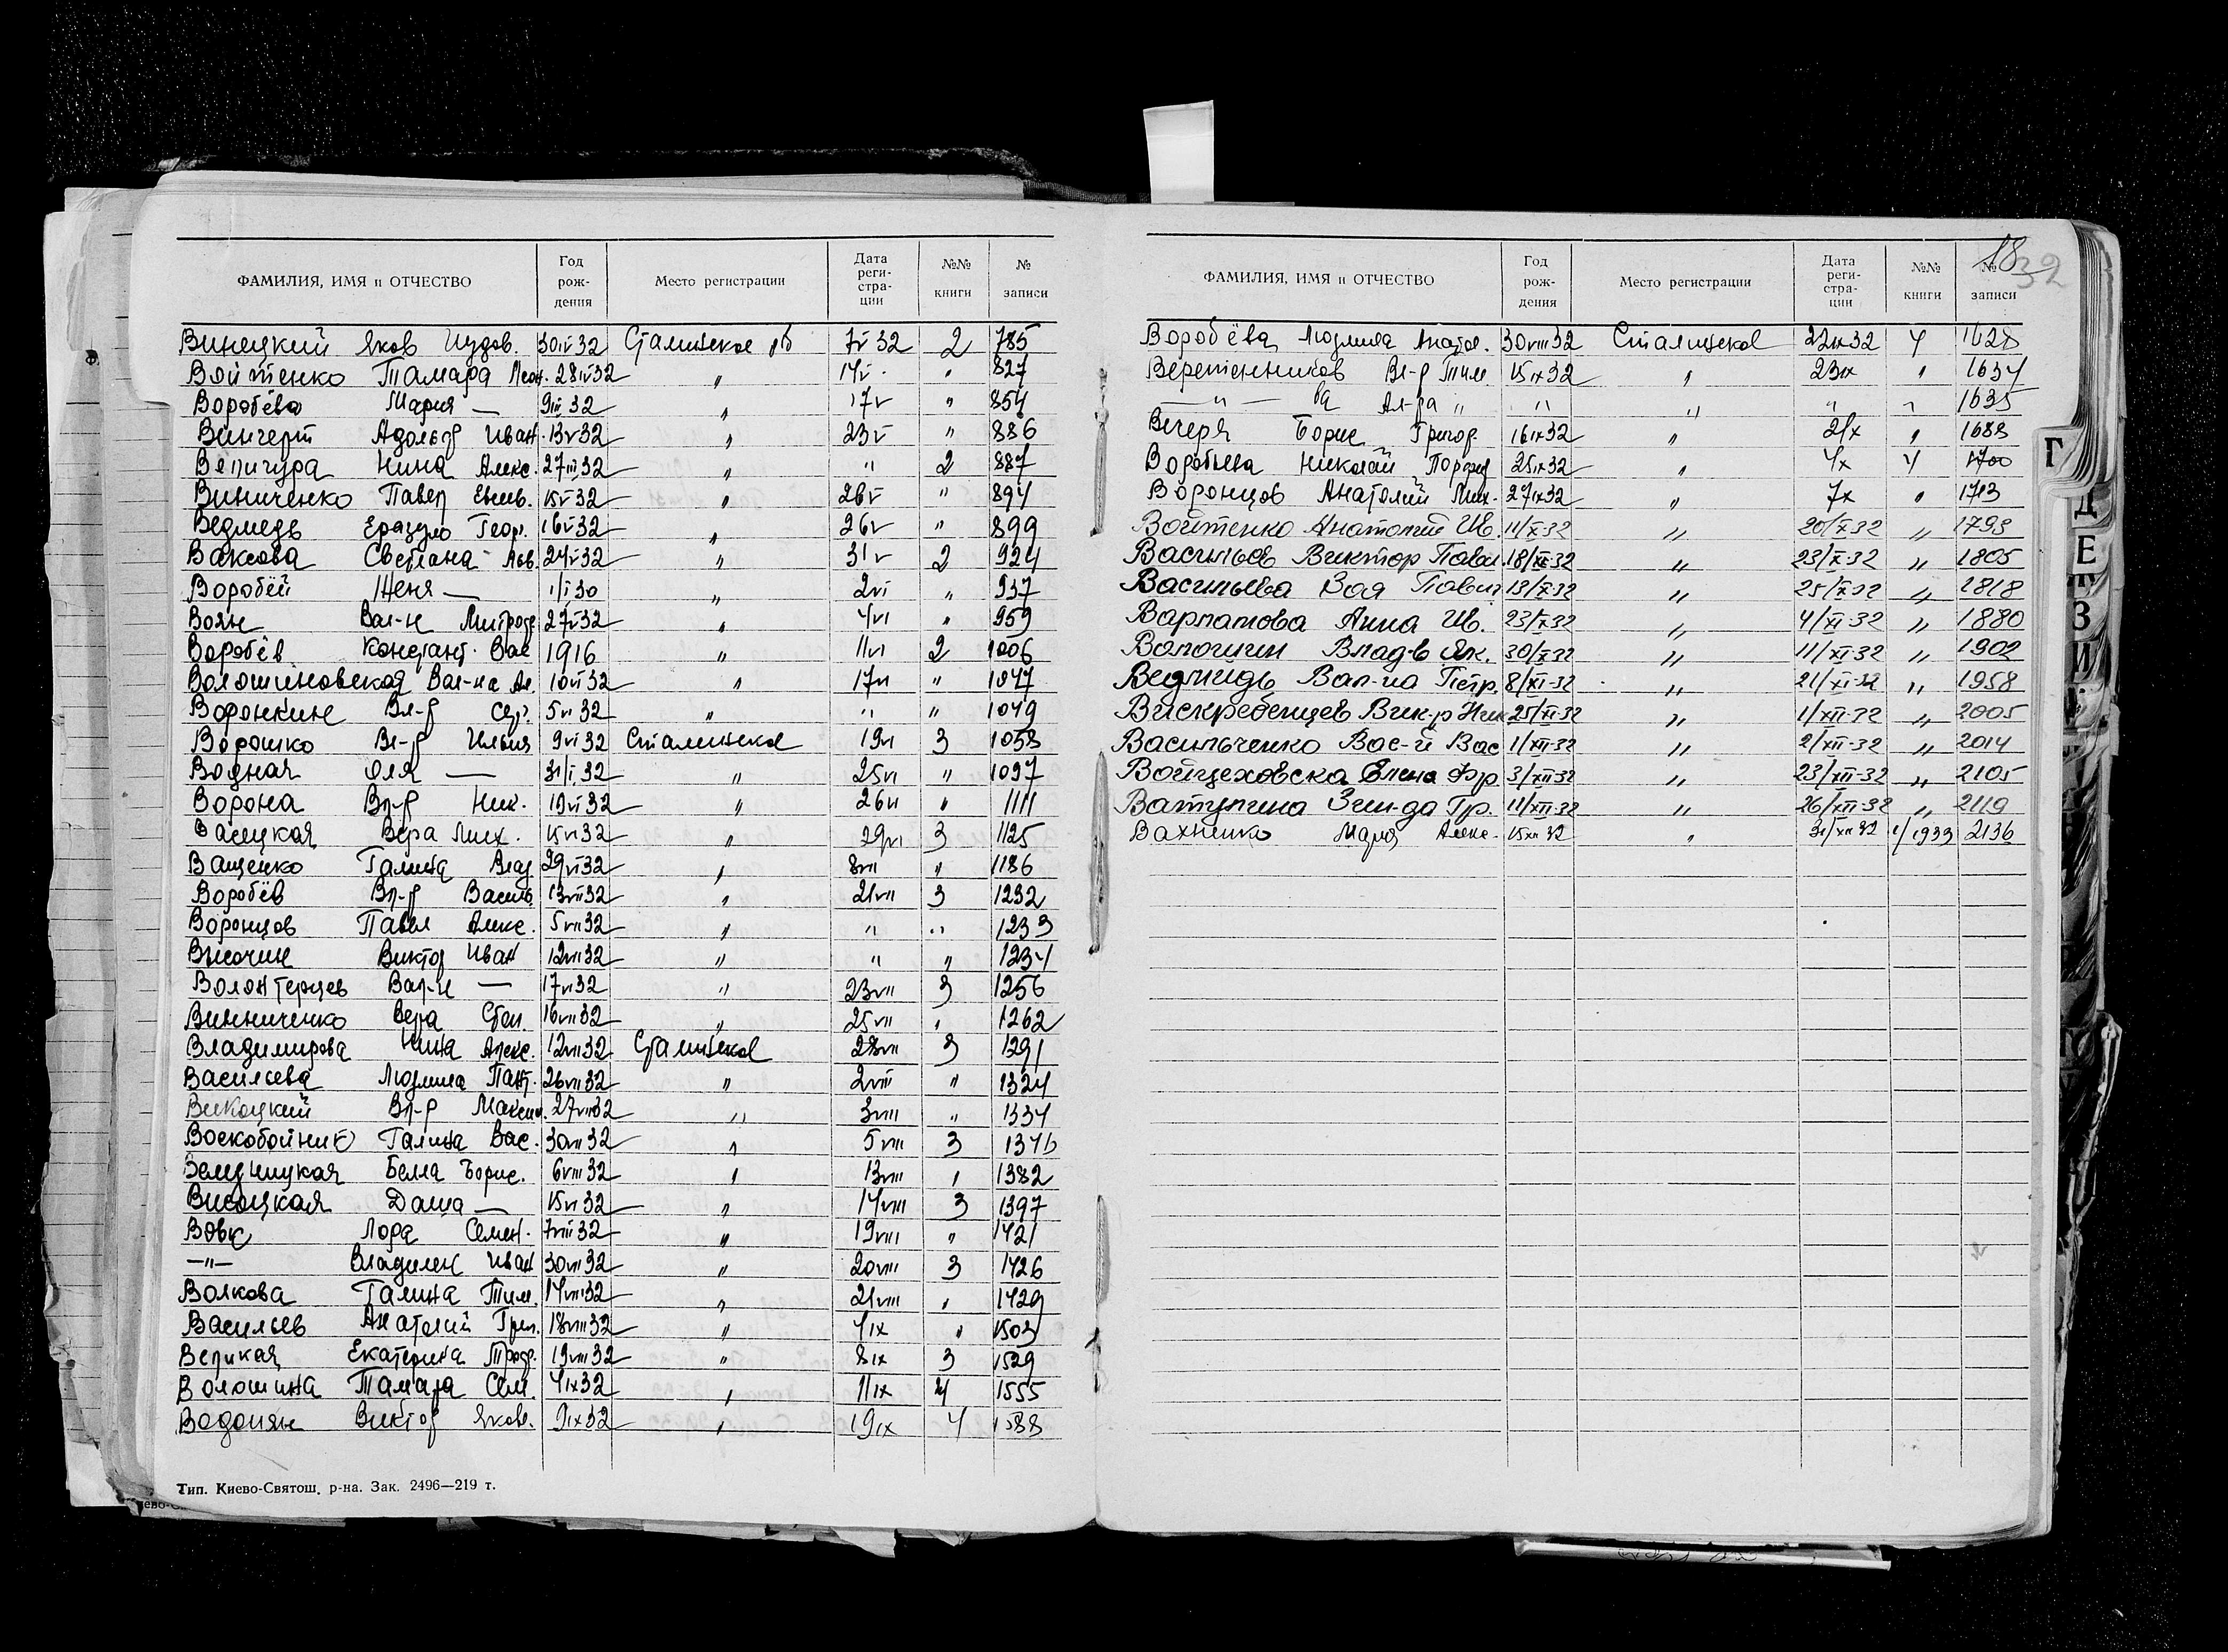 ФАМИЛИЯ, ИМЯ и ОТЧЕСТВО Год рождения Место регистрации Дата регистрации №№ книги № записи
Винецкий Яков Иудов. 30 IV 32 Сталинское рб 7 V 32 2 785
Войтенко Тамара Леон. 28 IV 32 " 14 V " 827
Воробёва Мария — 9 III 32 " 17 V " 854
Винчерт Адольф Иван. 13 V 32 " 23 V " 886
Величура Нина Алекс. 27 III 32 " " 2 887
Виниченко Павел 15 V 32 " 26 V " 894
Ведмедь Геор. 16 V 32 " 26 V " 899
Ваксова Светлана Льв. 24 V 32 " 31 V 2 924
Воробей Женя — 1/I 30 " 2 VI " 937
Воян Вал-н Митроф. 27 V 32 " 4 VI " 959
Воробёв Констант. Вас 1916 " 11 VI 2 1006
Волошиновская Вал-на Ал. 10 VI 32 " 17 VI " 1047
Воронкин Вл-р Сер. 5 VI 32 " " " 1049
Ворошко Вл-р Илья 9 VI 32 Сталинское 19 VI 3 1058
Водная Оля — 31/I 32 " 25 VI " 1097
Ворона Вл-р Ник. 19 VI 32 " 26 VI " 1111
Васецкая Вера Мих. 15 VI 32 " 29 VI 3 1125
Ващенко Галина Влад 29 VI 32 " 8 VII " 1186
Воробёв Вл-р Василь 13 VII 32 " 21 VII 3 1232
Воронцов Павел Алекс. 5 VII 32 " " " 1233
Высочин Виктор Иван 12 VII 32 " " " 1234
Волонтерцев Вал-н — 17 VI 32 " 23 VII 3 1256
Винниченко Вера Степ. 16 VII 32 " 25 VII " 1262
Владимирова Нина Алекс. 12 VII 32 Сталинское 28 VII 3 1291
Васильева Людмила Пант. 26 VII 32 " 2 VIII " 1324
Викоцкий Вл-р Максим. 27 VII 32 " 3 VIII " 1334
Воскобойник Галина Вас. 30 VII 32 " 5 VIII 3 1346
Белла Борис. 6 VIII 32 " 13 VIII " 1382
Висоцкая Даша — 15 VI 32 " 14 VIII 3 1397
Вовк Лора Семен. 7 VIII 32 " 19 VIII " 1421
—"— Владилен Иван 30 VII 32 " 20 VIII 3 1426
Волкова Галина Тим. 14 VIII 32 " 21 VIII " 1429
Васильев Анатолий Григ. 18 VIII 32 " 4 IX " 1503
Великая Екатерина Троф. 19 VIII 32 " 8 IX 3 1529
Волошина Тамара Сем. 4 IX 32 " 11 IX 4 1555
Водопян Виктор Яковл. 9 IX 32 " 19 IX 4 1588
Тип. Киево-Святош. р-на. Зак. 2496—219 т.
18
32
ФАМИЛИЯ, ИМЯ и ОТЧЕСТВО Год рождения Место регистрации Дата регистрации №№ книги № записи
Воробёва Людмила Анатол. 30 VIII 32 Сталинское 22 IX 32 4 1628
Веретенников Вл-р Тим. 15 IX 32 " 23 IX " 1634
—"— ва Ал-ра " " " " " 1635
Вечеря Борис Григор. 16 IX 32 " 2/X " 1688
Воробьева Николай Порфир 25 IX 32 " 4 X 4 1700
Воронцов Анатолий Мих. 27 IX 32 " 7 X " 1713
Войтенко Анатолий Ив. 11/X-32 " 20/X-32 " 1793
Васильев Виктор Павл. 18/IX-32 " 23/X-32 " 1805
Васильева Зоя Павл 13/X-32 " 25/X-32 " 1818
Варламова Анна Ив. 23/X-32 " 4/XI-32 " 1880
Вологин Влад-в Як. 30/X-32 " 11/XI-32 " 1902
Ведмидь Вал-на Петр. 8/XI-32 " 21/XI-32 " 1958
Вискребенцев Вик-р Ник 25/XI-32 " 1/XII-32 " 2005
Васильченко Вас-й Вас 1/XII-32 " 2/XII-32 " 2014
Войцеховска Елена Фр. 3/XII-32 " 23/XII-32 " 2105
Ватулина Зин-да Гр. 11/XII-32 " 26/XII-32 " 2119
Вахненко Мария Алекс. 15 XII 32 " 31/XII 32 1/1933 2136
Г
Д
Е
Ж
З
И